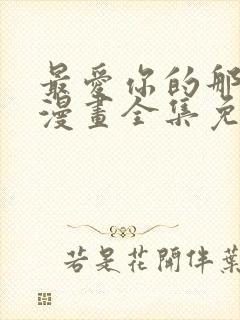 最愛你的那
漫畫全集免
若是花開伴葉